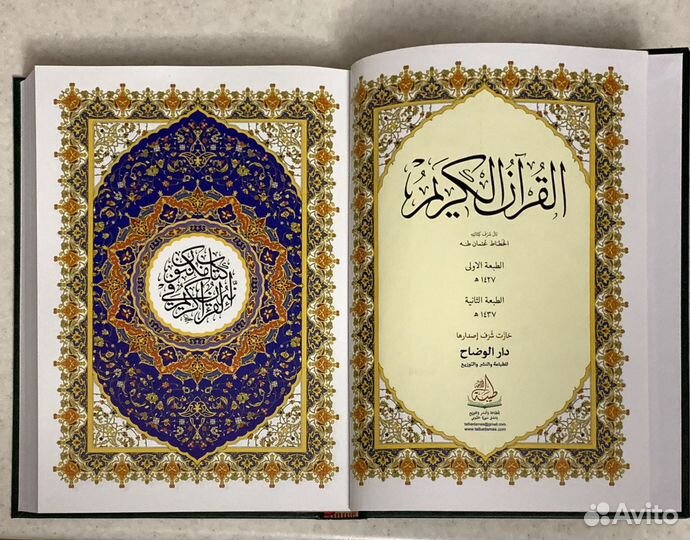 القُرآنُ الكَرِيمُ
نال شرف كتابته
الخطاط عثمان طه
الطبعة الأولى
١٤٢٧ هـ
الطبعة الثانية
١٤٣٧ هـ
حازت شرف إصدارها
دار الوضاح
للطباعة والنشر والتوزيع
طيبة
للطباعة والنشر والتوزيع
إنه لقرآن كريم في
كتاب مكنون
Avito